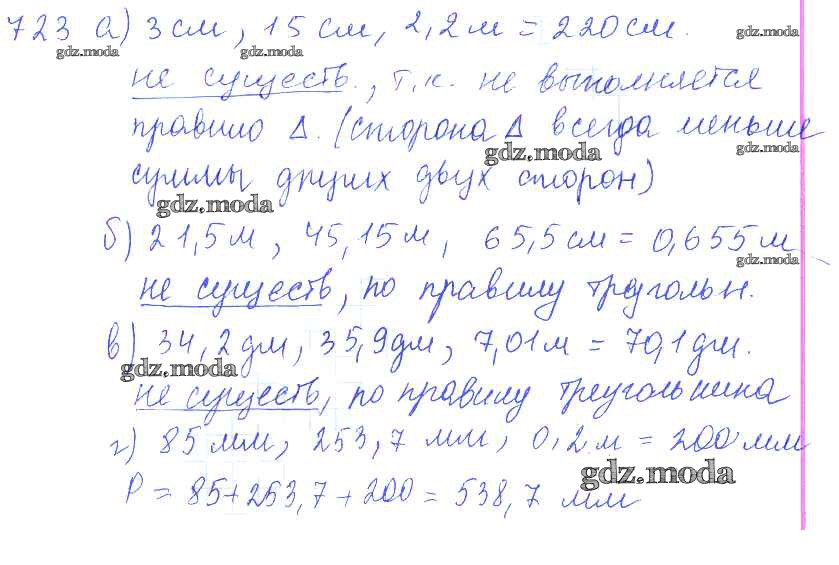 723 а) 3 см, 15 см, 2,2 м = 220 см.
gdz.moda gdz.moda gdz.moda
не существ., т.к. не выполняется
правило Δ. (сторона Δ всегда меньше
gdz.moda gdz.moda
суммы других двух сторон)
gdz.moda
б) 21,5 м, 45,15 м, 65,5 см = 0,655 м
gdz.moda
не существ, по правилу треугольн.
в) 34,2 дм, 35,9 дм, 7,01 м = 70,1 дм.
gdz.moda gdz.moda
не существ, по правилу треугольника
г) 85 мм, 253,7 мм, 0,2 м = 200 мм
gdz.moda
P = 85 + 253,7 + 200 = 538,7 мм